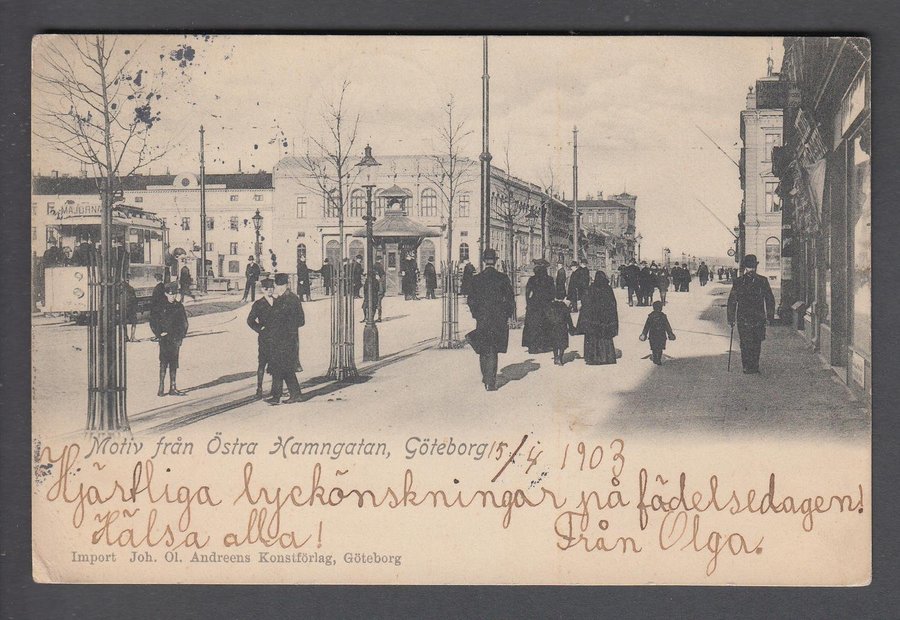 MAJORNA
Motiv från Östra Hamngatan, Göteborg 15/4 1903
Hjärtliga lyckönskningar på födelsedagen!
Hälsa alla! Från Olga.
Import Joh. Ol. Andreens Konstförlag, Göteborg